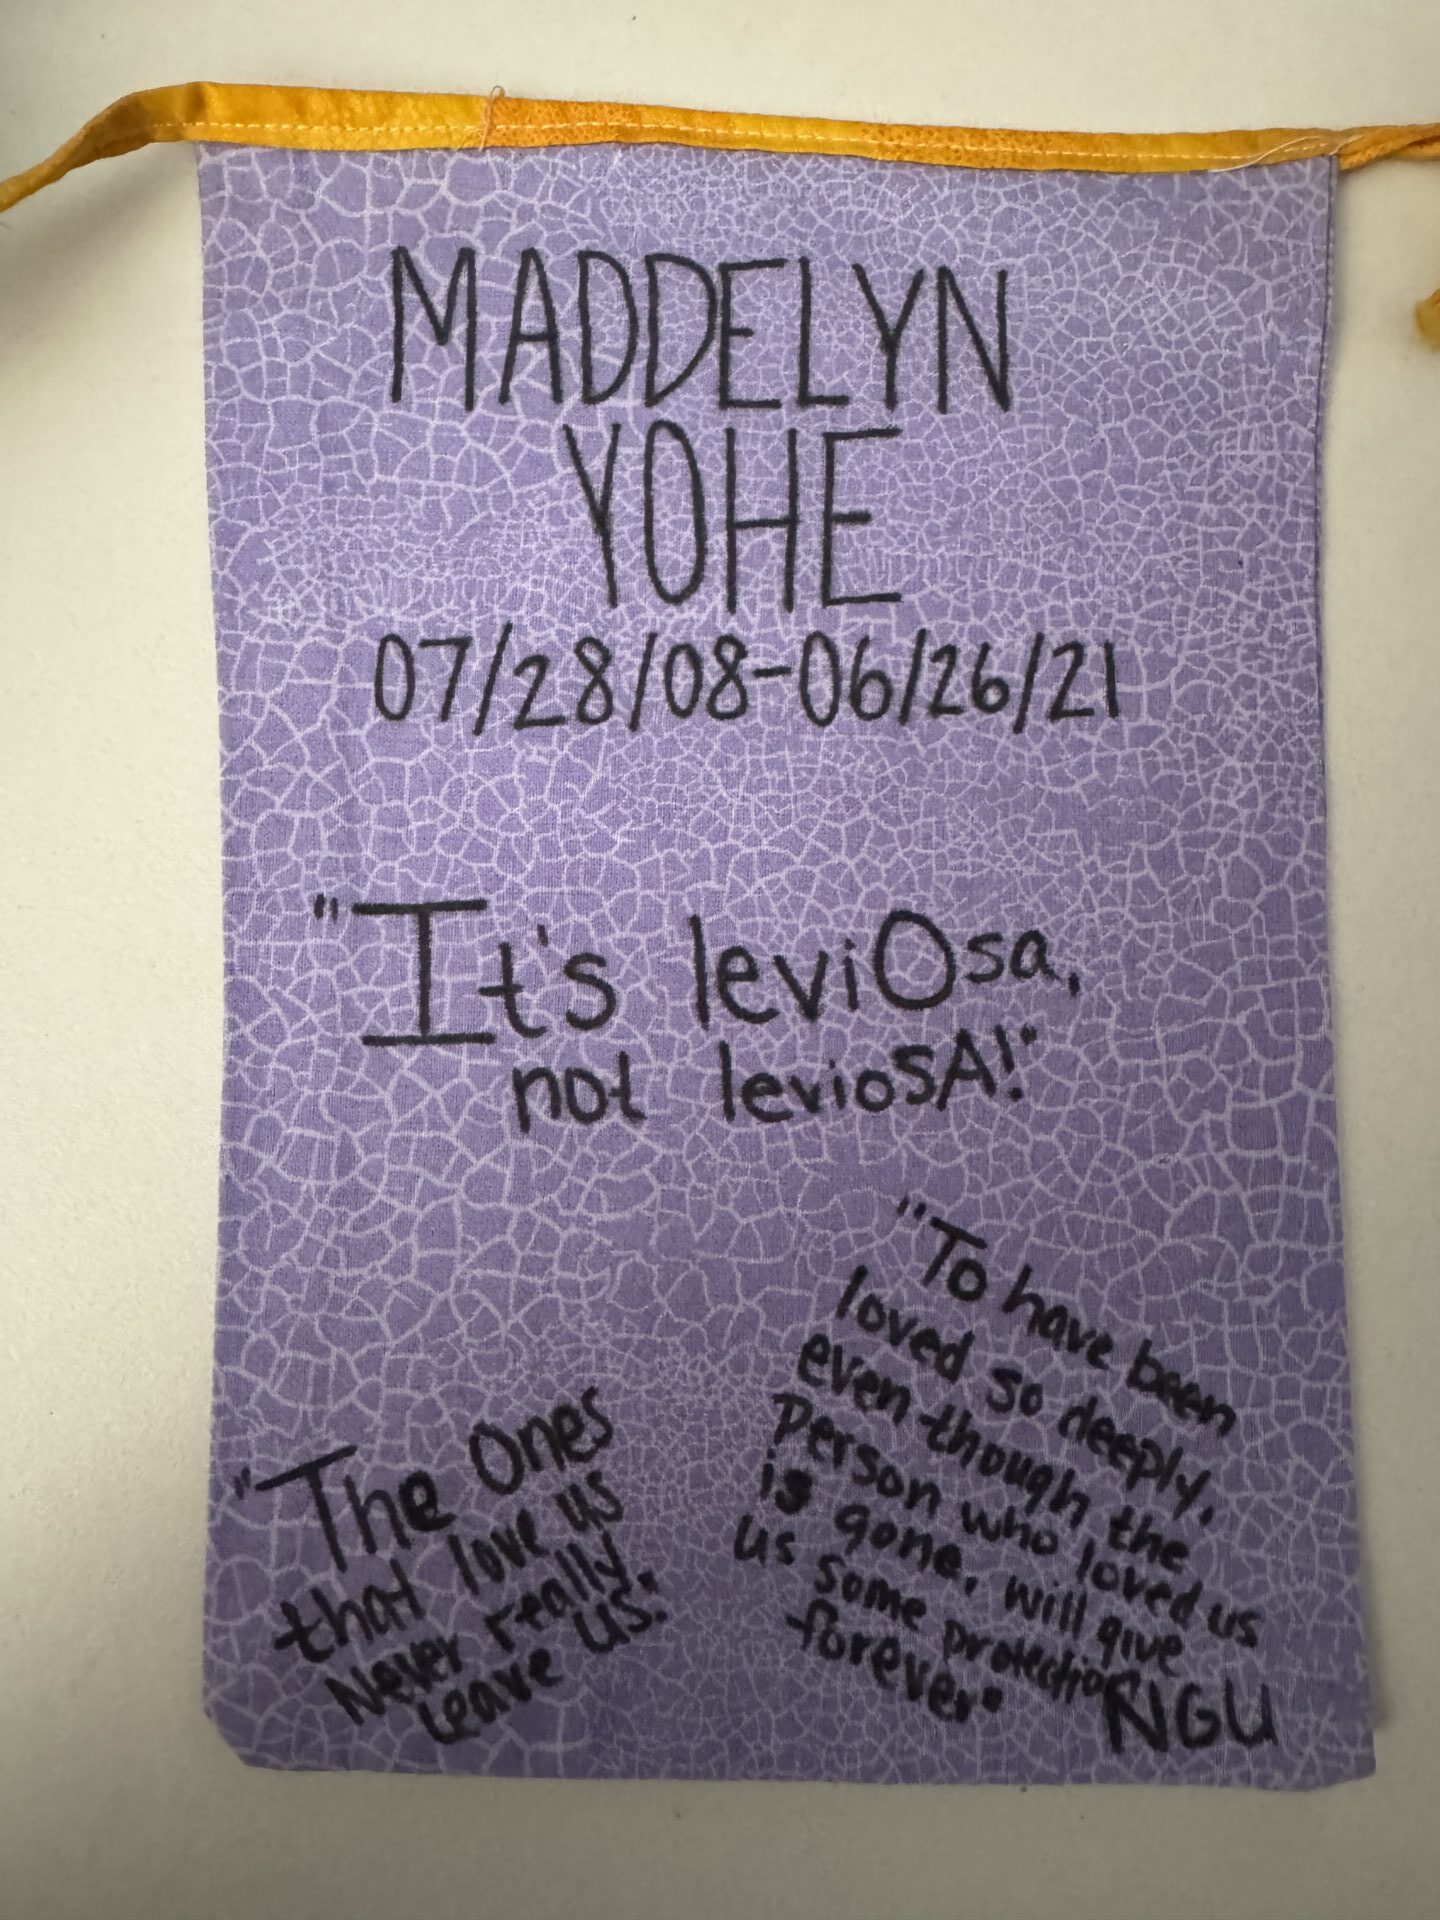 MADDELYN
YOHE
07/28/08-06/26/21
"It's leviOsa,
not levioSA!"
"The Ones
that love us
Never really
Leave us.
"To have been
loved so deeply,
even though the
person who loved us
is gone, will give
us some protection
forever"
NGU